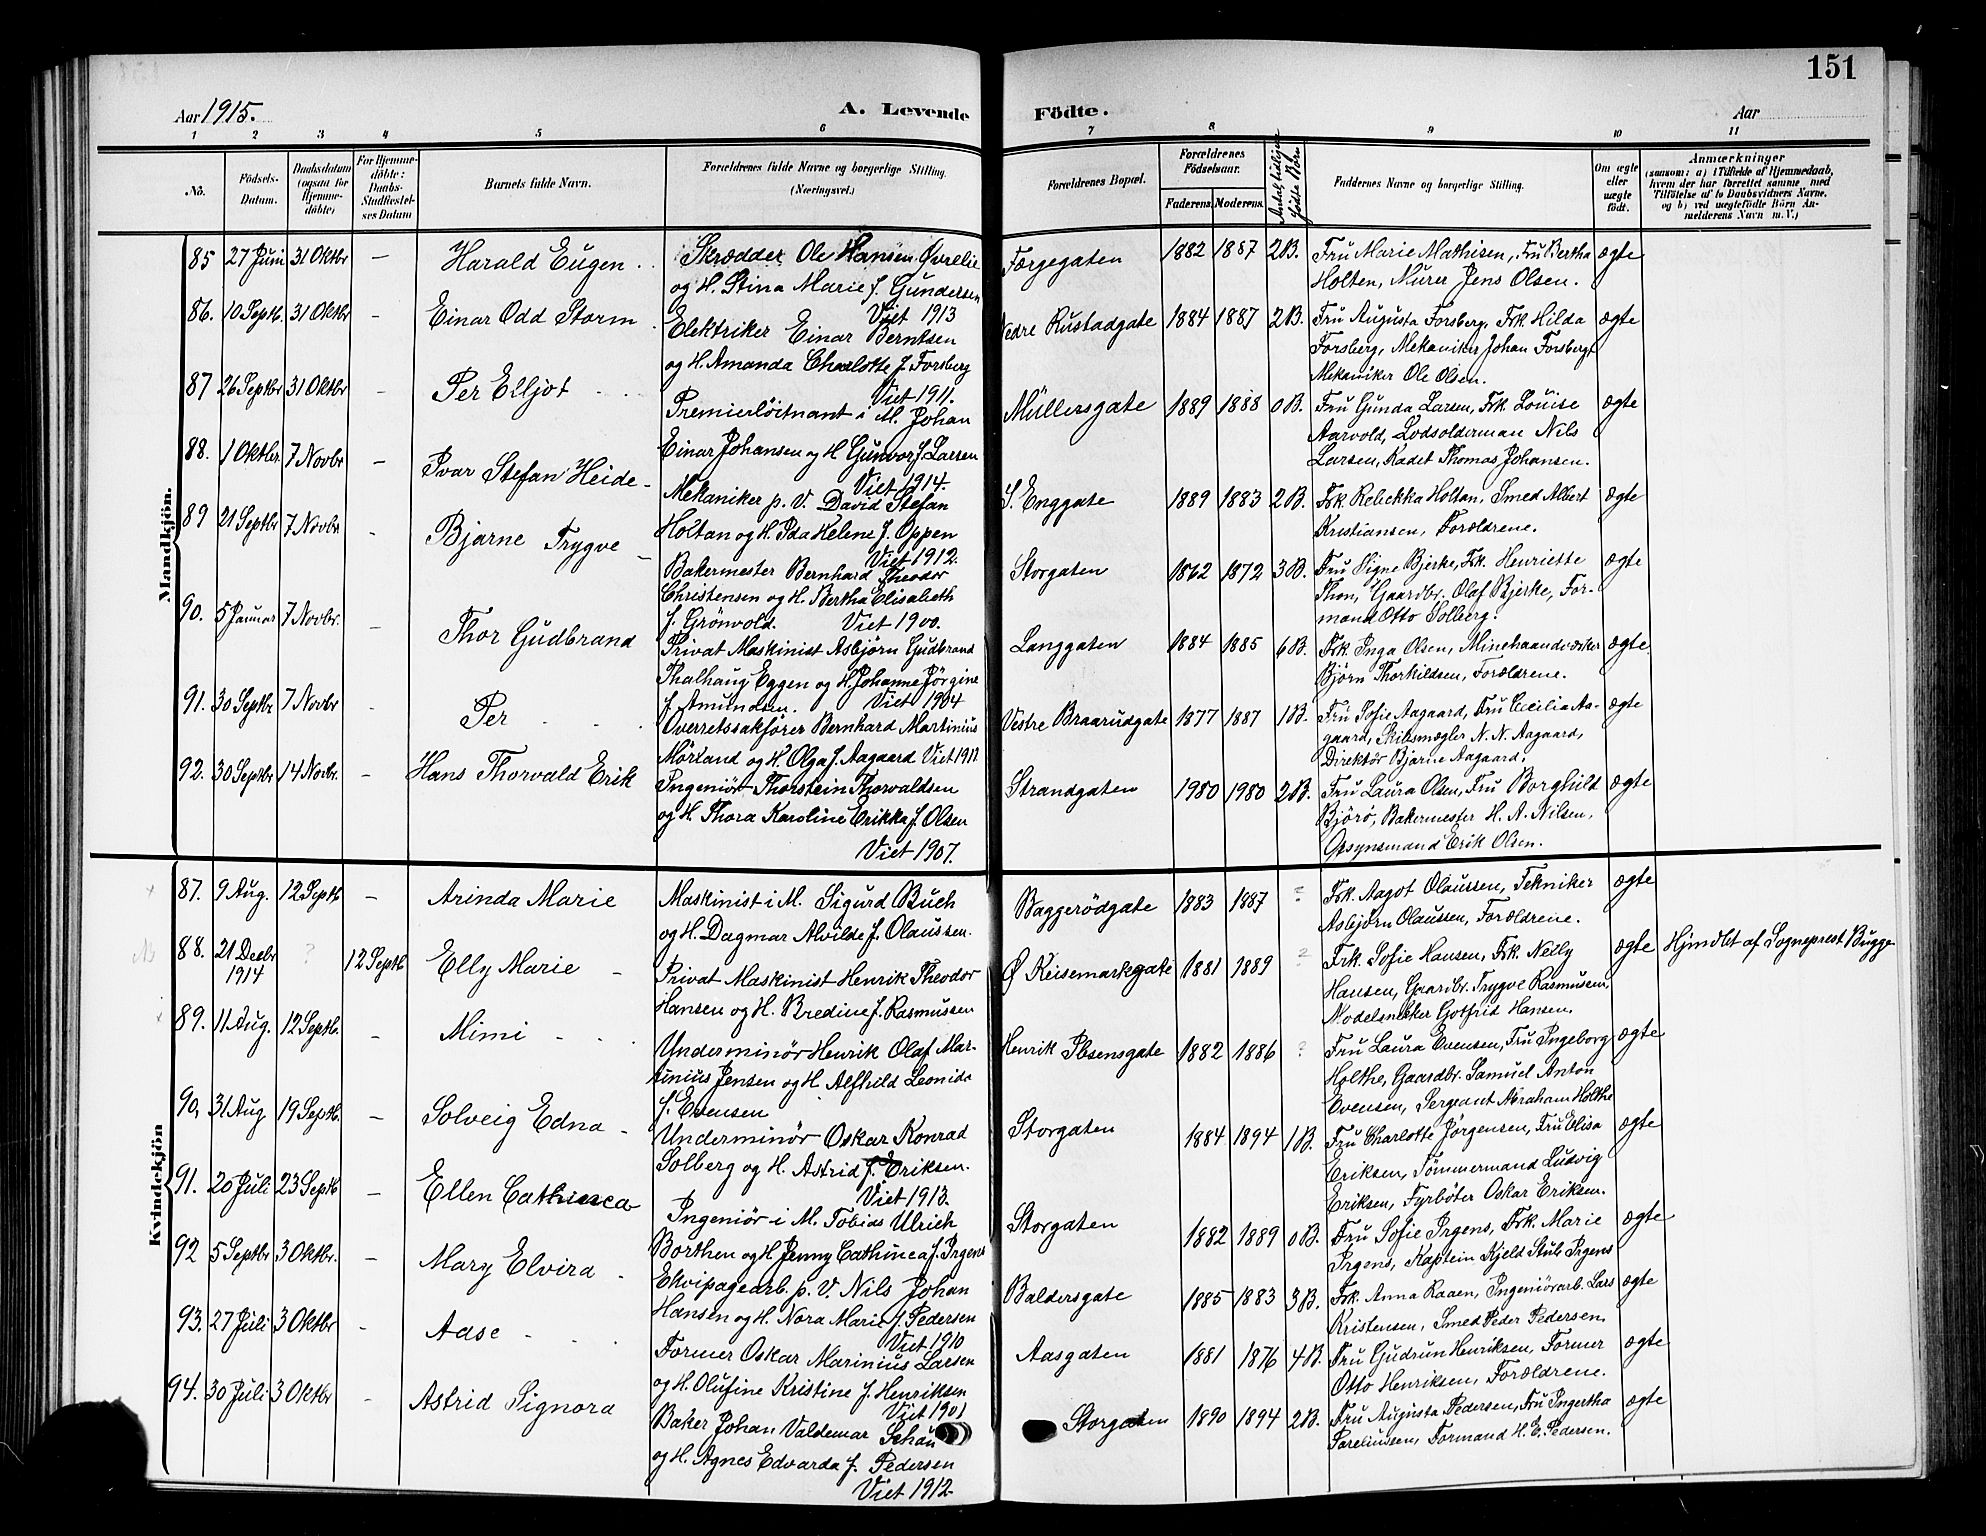 151
Aar 1915.
A. Levende
Födte.
Aar
1 2 3 4 5 6 7 8 9 10 11
No.
Födsels-Datum.
Daabsdatum (ogsaa for Hjemme-döbte)
For Hjemme-döbte: Daabs-Stadfæstel-ses Datum
Barnets fulde Navn.
Forældrenes fulde Navne og borgerlige Stilling. (Næringsvei.)
Forældrenes Bopæl.
Forældrenes Födselsaar.
Faderens. Moderens.
Antal tidligere fødte Børn
Faddernes Navne og borgerlige Stilling.
Om ægte eller uægte födt.
Anmærkninger
(saasom: a) i Tilfælde af Hjemmedaab,
hvem der har forrettet samme, med
Tilföielse af to Daabsvidners Navne,
og b) ved uægtefödte Börn An-
melderens Navn m. V.)
Mandkjön.
85 27 Juni 31 Oktbr - Harald Eugen
Skrædder Ole Hansen Øvrelie
og H. Stina Marie f. Gundersen
Viet 1913
Færgegaten 1882 1887 2B.
Fru Marie Mathisen, Fru Bertha
Holten, Murer Jens Olsen.
ægte
86. 10 Septb. 31 Oktbr - Einar Odd Storm
Elektriker Einar Berntsen
og H. Amanda Charlotte f. Forsberg
Viet 1911.
Nedre Rustadgate 1884 1887 2B.
Fru Augusta Forsberg, Frk. Hilda
Forsberg, Mekaniker Johan Forsberg
Mekaniker Ole Olsen.
ægte
87 26 Septbr 31 Oktbr - Per Elljot
Premierløitnant i M. Johan
Einar Johansen og H Gunvor f. Larsen
Viet 1914.
Müllersgate 1889 1888 0B.
Fru Gunda Larsen, Frk. Louise
Aarvold, Lodsolderman Nils
Larsen, Kadet Thomas Johansen.
ægte
88. 1 Oktbr. 7 Novbr - Ivar Stefan Heide
Mekaniker p. V. David Stefan
Holtan og H. Ida Helene f. Oppen
Viet 1912.
S. Enggate 1889 1883 2B.
Frk. Rebekka Holtan, Smed Albert
Kristiansen, Forældrene.
ægte
89 21 Septbr 7 Novbr - Bjarne Trygve
Bakermester Bernhard Theodor
Christensen og H. Bertha Elisabeth
f. Grönvold. Viet 1900.
Storgaten 1862 1872 3B.
Fru Signe Bjerke, Frk. Henriette
Thon, Gaardbr. Olaf Bjerke, For-
mand Otto Solberg.
ægte
90. 5 Januar 7 Novbr. - Thor Gudbrand
Privat Maskinist Asbjørn Gudbrand
Thalhaug Eggen og H. Johanne Jörgine
f. Amundsen. Viet 1904
Langgaten 1884 1885 6B.
Frk. Inga Olsen, Minehaandværker
Björn Thorkildsen, Forældrene.
ægte.
91. 30 Septbr 7 Novbr - Per
Overretssakfører Bernhard Martinius
Mörland og H. Olga f. Aagaard Viet 1911.
Vestre Braarudgate 1877 1887 1B.
Fru Sofie Aagaard, Fru Cecilia Aa-
gaard, Skibsmægler N. N. Aagaard,
Direktør Bjarne Aagaard.
ægte
92. 30 Septbr 14 Novbr. - Hans Thorvald Erik
Ingeniör Thorstein Thorvaldsen
og H. Thora Karoline Erikka f. Olsen
Viet 1907.
Strandgaten 1980 1980 2B.
Fru Laura Olsen, Fru Borghild
Björö, Bakermester H. A. Nilsen,
Opsynsmand Erik Olsen.
ægte
Kvindekjön
87. 9 Aug. 12 Septb - Arinda Marie
Maskinist i M. Sigurd Buch
og H. Dagmar Alvilde f. Olaussen.
Baggerödgate 1883 1887 ?
Frk. Aagot Olaussen, Tekniker
Asbjørn Olaussen, Forældrene.
ægte
88. 21 Decbr 1914 ? 12 Septb Elly Marie
Privat Maskinist Henrik Theodor
Hansen og H. Bredine f. Rasmussen
Ø Keisemarkgate 1881 1889 ?
Frk. Sofie Hansen, Frk. Nelly
Hansen, Gaardbr. Trygve Rasmusen,
Modelsnekker Gotfrid Hansen.
ægte
Hjmdbt af Sogneprest Bugge
89. 11 Aug. 12 Septb. - Mimi
Underminör Henrik Olaf Mar-
tinius Jensen og H. Alfhild Leonida
f. Evensen
Henrik Ibsensgate 1882 1886 ?
Fru Laura Evensen, Fru Ingeborg
Holthe, Gaardbr. Samuel Anton
Evensen, Sergeant Abraham Holthe
ægte
90. 31 Aug 19 Septb. - Solveig Edna
Underminör Oskar Konrad
Solberg og H. Astrid f. Eriksen.
Viet 1913.
Storgaten 1884 1894 1B.
Fru Charlotte Jørgensen, Fru Elisa
Eriksen, Tömmermand Ludvig
Eriksen, Fyrböter Oskar Eriksen.
ægte
91. 20 Juli 23 Septb - Ellen Cathinca
Ingeniör i M. Tobias Ulrich
Borthen og H. Jenny Cathinca f. Irgens
Storgaten 1882 1889 0B.
Fru Sofie Irgens, Frk. Marie
Irgens, Kaptein Kjeld Stub Irgens
ægte
92 5 Septbr 3 Oktbr. - Mary Elvira
Ekvipagearb. p. V. Nils Johan
Hansen og H. Nora Marie f. Pedersen
Viet 1910
Baldersgate 1885 1883 3B.
Frk. Anna Raaen, Ingeniörarb. Lars
Kristensen, Smed Peder Pedersen.
ægte
93. 27 Juli 3 Oktbr - Aase
Former Oskar Marinius Larsen
og H. Olufine Kristine f. Henriksen
Viet 1901
Aasgaten 1881 1876 4B.
Fru Gudrun Henriksen, Former
Otto Henriksen, Forældrene.
ægte
94. 30 Juli 3 Oktbr - Astrid Signora
Baker Johan Valdemar Schau
og H. Agnes Edvarda f. Pedersen
Viet 1912.
Storgaten 1890 1894 2B.
Fru Augusta Pedersen, Fru Ingertha
Sareliussen, Formand H. E. Pedersen.
ægte